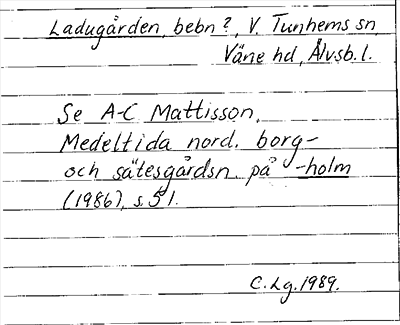 Ladugården, bebn?, V. Tunhems sn,
Väne hd, Älvsb. l.
Se A-C Mattisson,
Medeltida nord. borg-
och sätesgårdsn. på -holm
(1986), s. 51.
C. Lg. 1989.